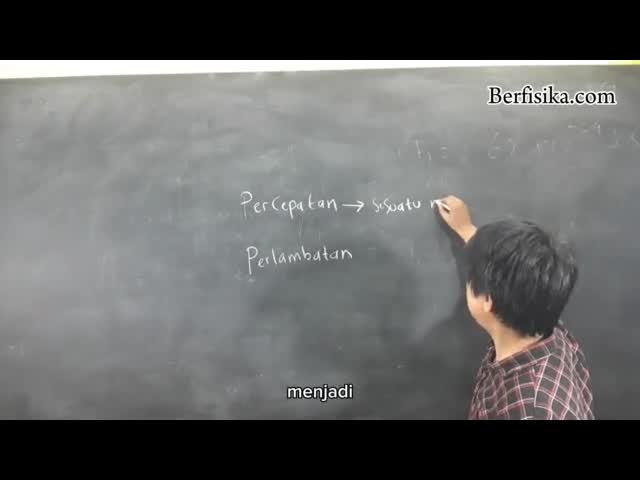 Berfisika.com
Percepatan → sesuatu m
Perlambatan
menjadi